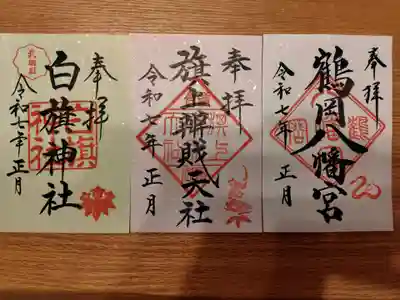 奉拝
鶴岡八幡宮
令和七年 正月
奉拝
旗上辯財天社
令和七年 正月
奉拝
白旗神社
令和七年 正月
白旗
神社